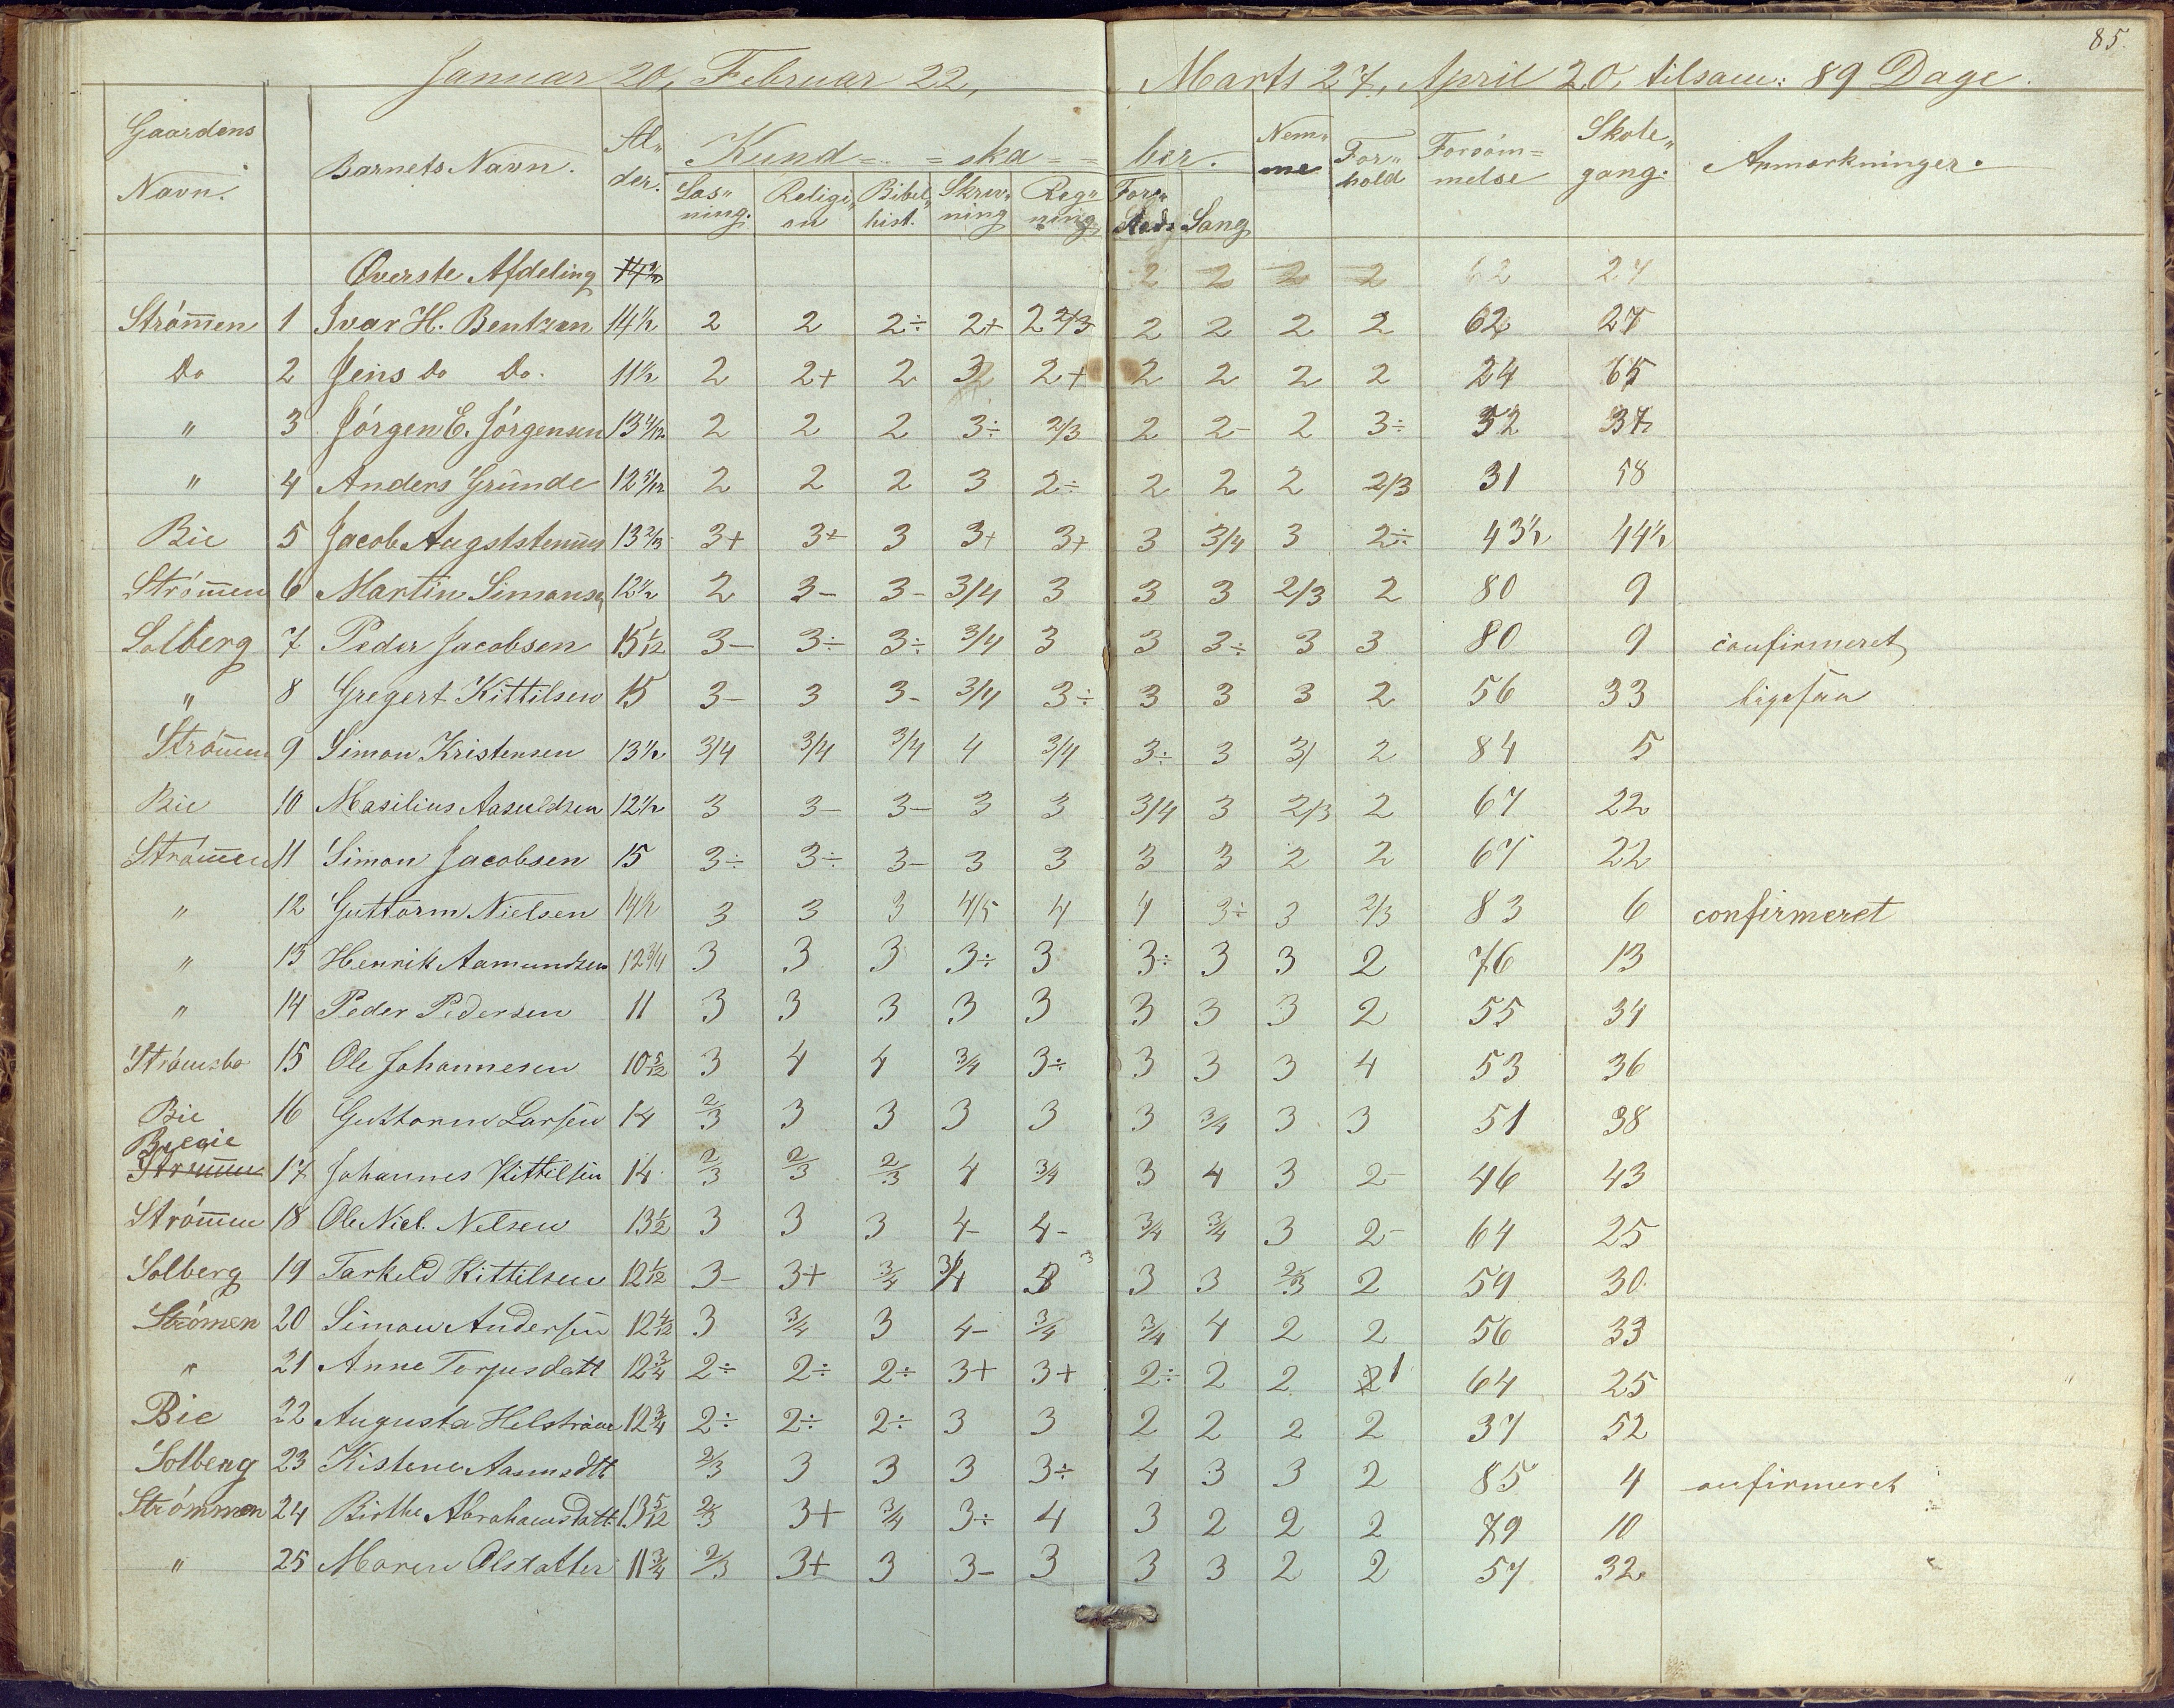 85.
Januar 20, Februar 22, Marts 27, April 20, tilsam: 89 Dage.
Gaardens Navn. Barnets Navn. Al„ der. Kund= =ska= = ber. Nem„ me For„ hold Forsöm= melse Skole„ gang. Anmærkninger.
Læs„ ning. Religi„ on Bibel„ hist. Skriv„ ning Reg„ ning Sang
Øverste Afdeling 2 2 2 2 62 27
Strömen 1 Ivar H. Bentzen 14½ 2 2 2÷ 2+ 2 2/3 2 2 2 2 62 27
Do 2 Jens Do Do. 11½ 2 2+ 2 2+ 2 2 2 2 24 65
„ 3 Jörgen E. Jörgensen 2 2 2 3÷ 2/3 2 2- 2 3÷ 52 37
„ 4 Anders Grunde 2 2 2 3 2÷ 2 2 2 2/3 31 58
Bie 5 Jacob 3+ 3+ 3 3+ 3+ 3 3/4 3 2÷ 43½ 44½
Strömen 6 Martin Simonsen 12½ 2 3- 3- 3/4 3 3 3 2/3 2 80 9
Solberg 7 Peder Jacobsen 15 1/12 3- 3÷ 3÷ 3/4 3 3 3÷ 3 3 80 9 confirmeret
„ 8 Gregert Kittilsen 15 3- 3 3- 3/4 3÷ 3 3 3 2 56 33 ligesaa
Strömen 9 Simon Kristensen 13½ 3/4 3/4 3/4 4 3/4 3÷ 3 3/ 2 84 5
Bie 10 Masilius Aasuldsen 12½ 3 3- 3- 3 3 3/4 3 2/3 2 67 22
Strömen 11 Simon Jacobsen 15 3÷ 3÷ 3- 3 3 3 3 2 2 67 22
„ 12 Guttorm Nielsen 14½ 3 3 3 4/5 4 4 3÷ 3 2/3 83 6 confirmeret
„ 13 Henrik Aamundsen 12 3/4 3 3 3 3÷ 3 3÷ 3 3 2 76 13
„ 14 Peder Pedersen 11 3 3 3 3 3 3 3 3 2 55 34
Strömsbo 15 Ole Johannesen 10 5/12 3 4 4 3/4 3÷ 3 3 3 4 53 36
Bie 16 Guttorm Larsen 14 2/3 3 3 3 3 3 3/4 3 3 51 38
Strömen 17 Johannes Kittilsen 14 2/3 2/3 2/3 4 3/4 3 4 3 2- 46 43
Strömen 18 Ole Niel. Nelsen 13½ 3 3 3 4- 4- 3/4 3/4 3 2- 64 25
Solberg 19 Tarkeld Kittilsen 12 1/12 3- 3+ 3/4 3/4 3 3 3 2/3 2 59 30
Strömen 20 Simon Andersen 12 4/12 3 3/4 3 4- 3/4 3/4 4 2 2 56 33
„ 21 Anne Torjusdatt 12 3/4 2÷ 2÷ 2÷ 3+ 3+ 2÷ 2 2 2 1 64 25
Bie 22 Augusta Helström 12 3/4 2÷ 2÷ 2÷ 3 3 2 2 2 2 37 52
Solberg 23 Kistene Aasmsdtt 2/3 3 3 3 3÷ 4 3 3 2 85 4 confirmeret
Strömmen 24 Birthe Abrahamsdatt. 13 5/12 2/3 3+ 3/4 3÷ 4 3 2 2 2 79 10
„ 25 Maren Olsdatter 11 3/4 2/3 3+ 3 3- 3 3 3 2 2 57 32